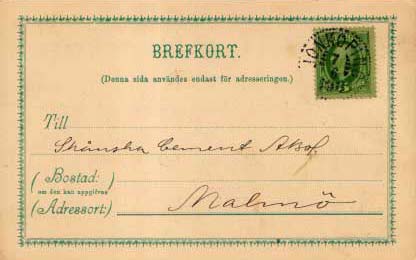 BREFKORT.
(Denna sida användes endast för adresseringen.)
Till
Skånska Cement Aktb.
(Bostad:
om den kan uppgifvas
(Adressort:)
Malmö